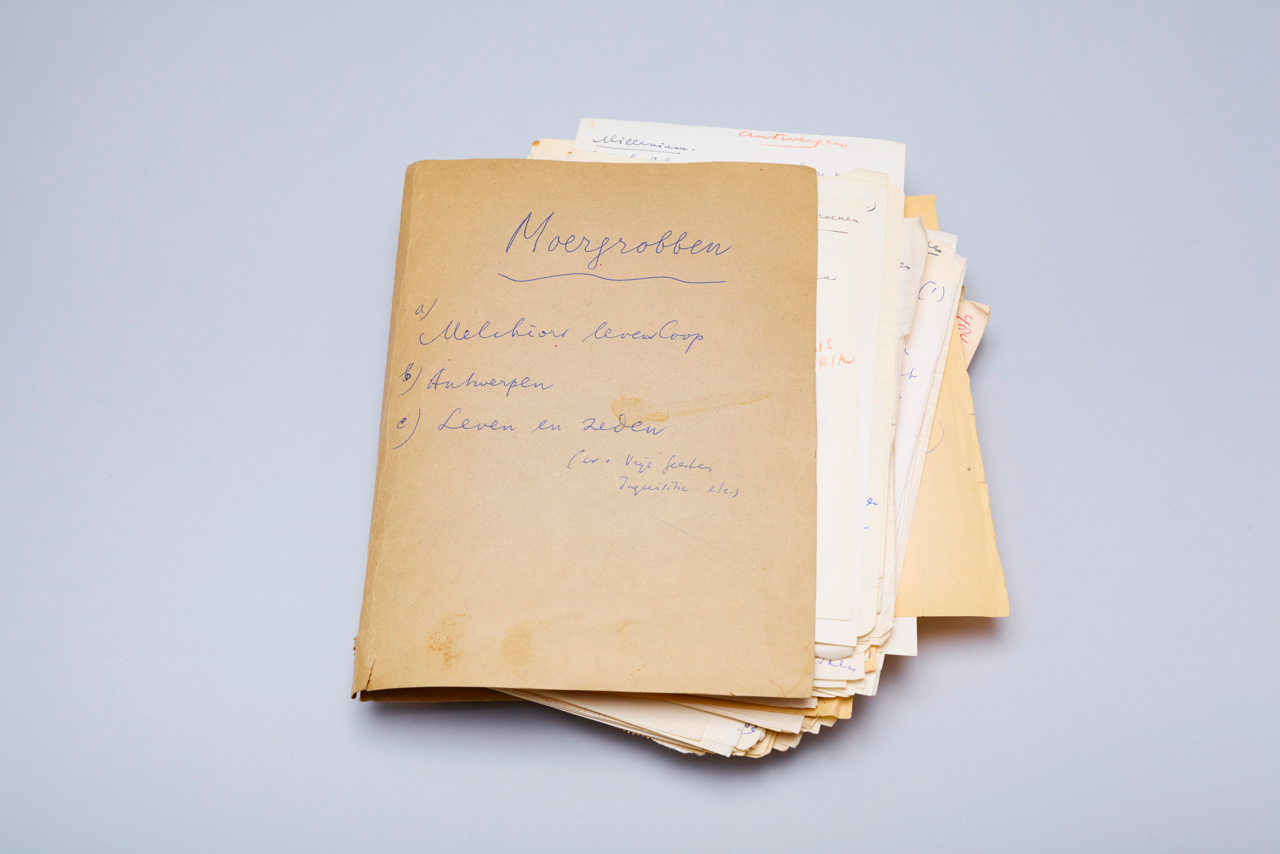 Millenium.
Antwerpen
Moergrobben
a)
Melchiors levensloop
b) Antwerpen
c) Leven en zeden
(w.o. Vrije Geesten
Inquisitie etc.)
(1)